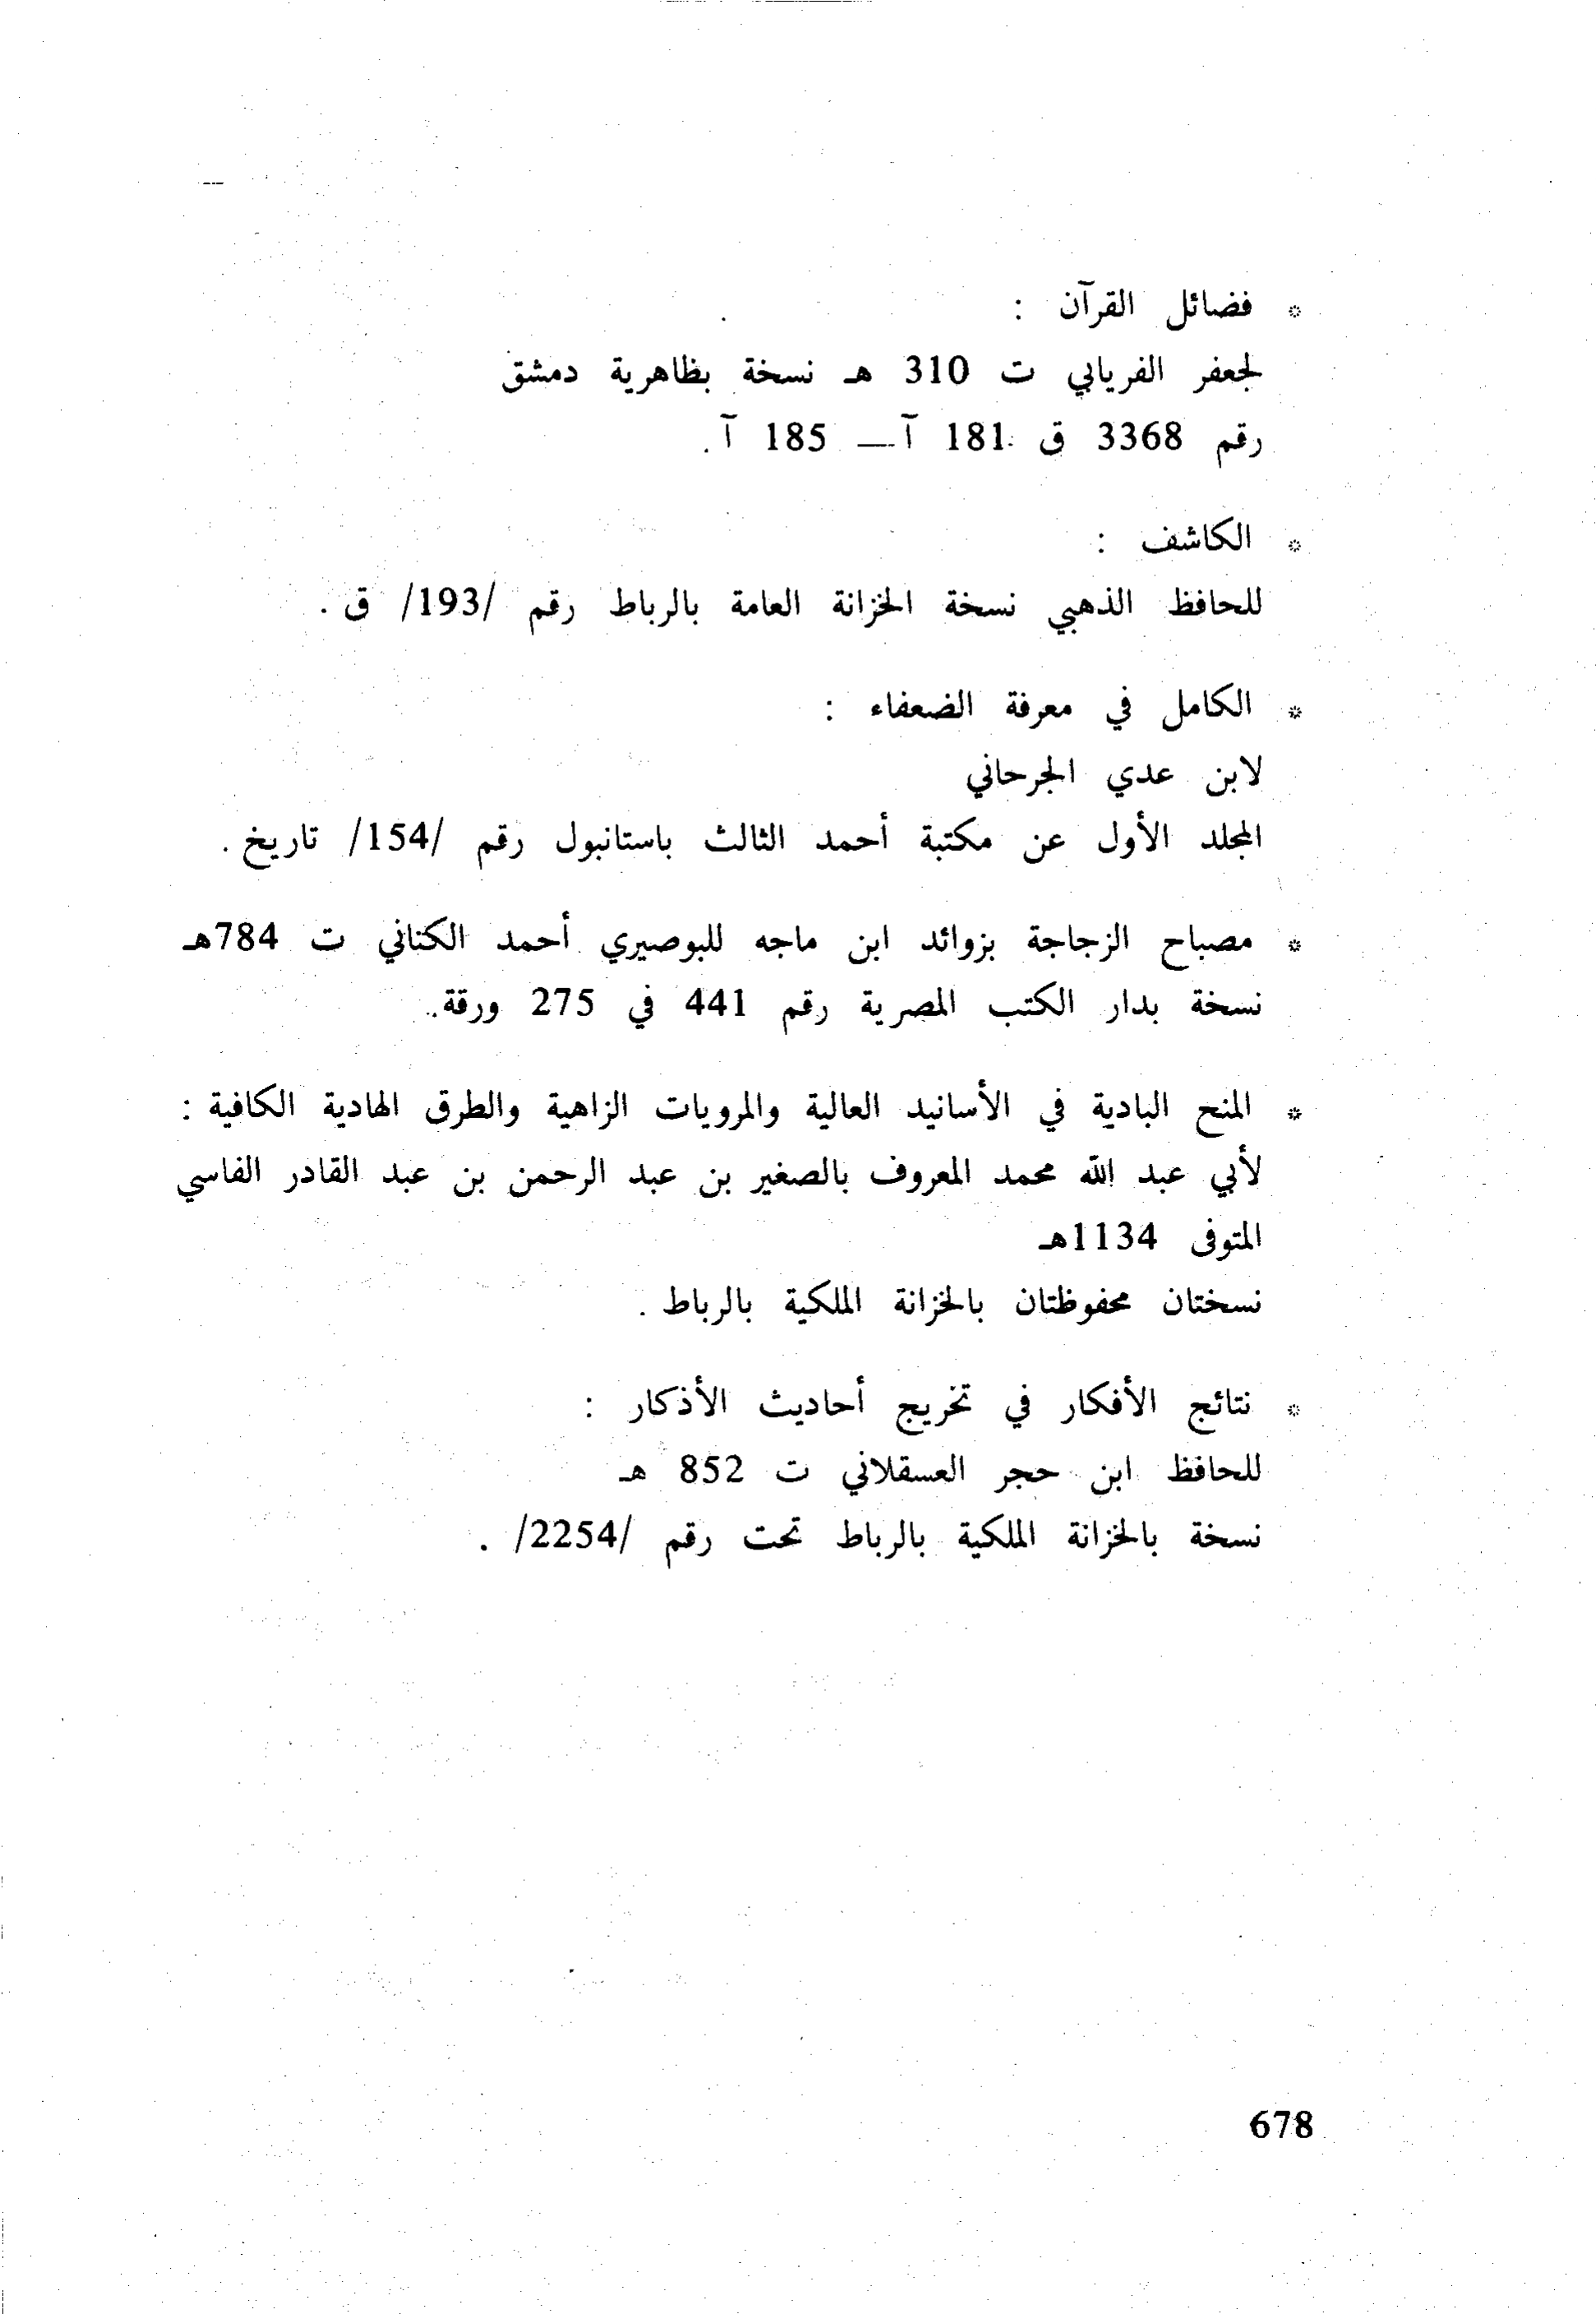 * فضائل القرآن :
لجعفر الفريابي ت 310 هـ نسخة بظاهرية دمشق
رقم 3368 ق 181 آ — 185 آ .
* الكاشف :
للحافظ الذهبي نسخة الخزانة العامة بالرباط رقم /193/ ق .
* الكامل في معرفة الضعفاء :
لابن عدي الجرحاني
المجلد الأول عن مكتبة أحمد الثالث باستانبول رقم /154/ تاريخ .
* مصباح الزجاجة بزوائد ابن ماجه للبوصيري أحمد الكناني ت 784هـ
نسخة بدار الكتب المصرية رقم 441 في 275 ورقة .
* المنح البادية في الأسانيد العالية والمرويات الزاهية والطرق الهادية الكافية :
لأبي عبد الله محمد المعروف بالصغير بن عبد الرحمن بن عبد القادر الفاسي
المتوفى 1134هـ
نسختان محفوظتان بالخزانة الملكية بالرباط .
* نتائج الأفكار في تخريج أحاديث الأذكار :
للحافظ ابن حجر العسقلاني ت 852 هـ
نسخة بالخزانة الملكية بالرباط تحت رقم /2254/ .
678